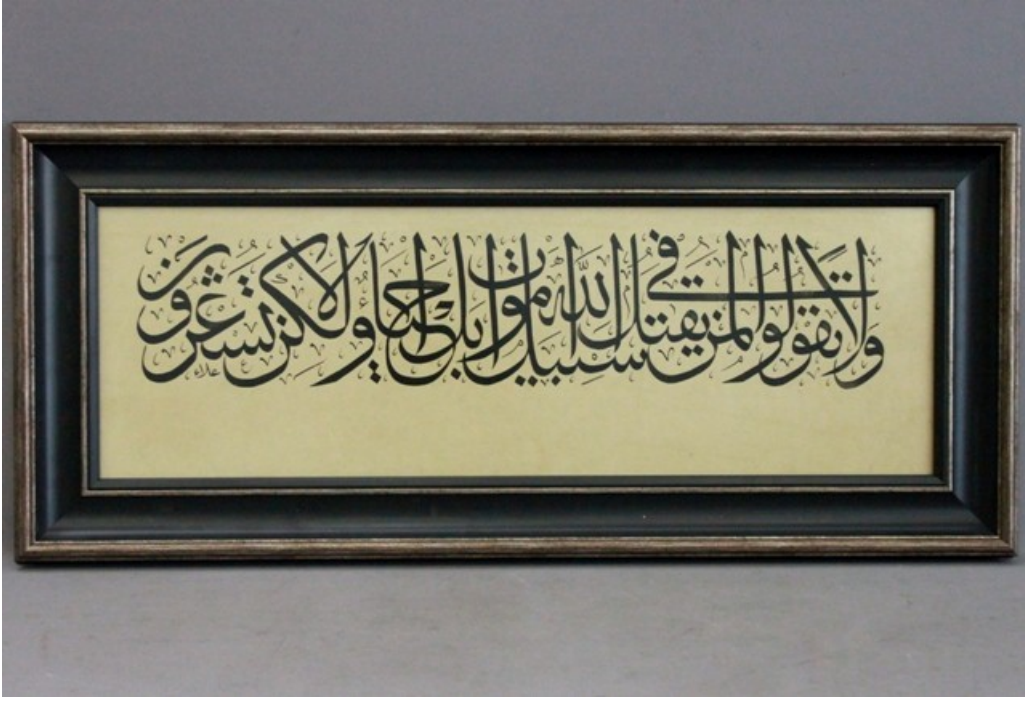 ولا تقولوا لمن يقتل في سبيل الله اموات بل احياء ولاكن لا تشعرون
علاء